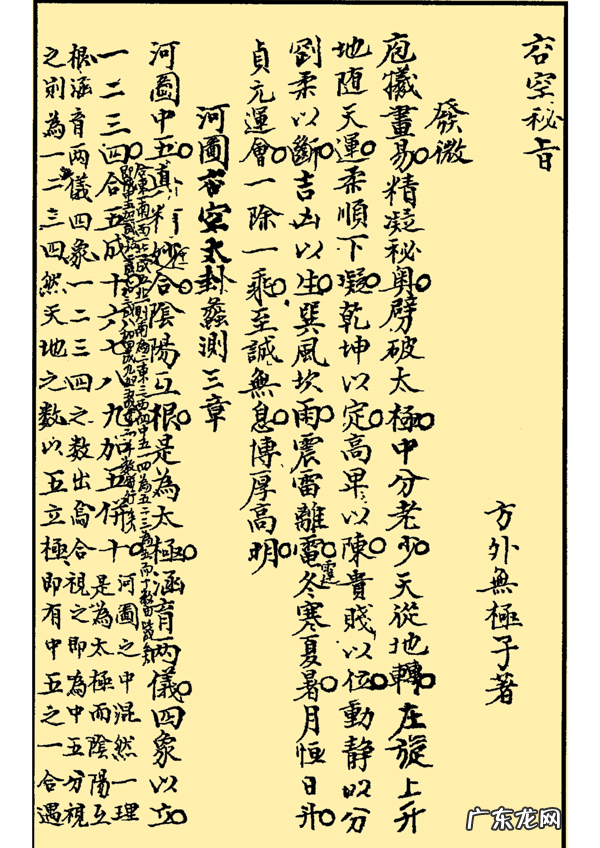 玄空秘旨
方外無極子著
發微
庖犧畫易精凝秘奧劈破太極中分老少天從地轉左旋上升
地随天運柔順下凝乾坤以定高卑以陳貴賤以位動靜以分
劉柔以斷吉凶以生巽風坎雨震雷離電冬寒夏暑月恒日升
貞元運會一除一乘至誠無息博厚高明
河圖玄空大卦蠡測三章
河圖中五道 妙合陰陽互根是為太極涵育两儀四象以立
一二三四合五成十六七八九加五併十
河圖之中混然一理
是為太極而陰陽互
根涵育两儀四象一二三四之数出焉合視之即為中五分視
之則為一二三四然天地之数以五立極即有中五之一合遇
广东龙网